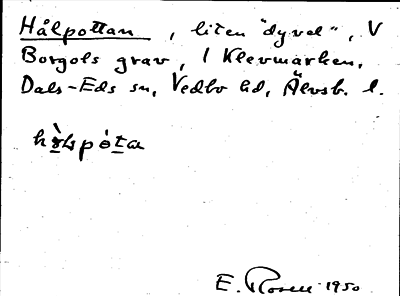 Hålpottan, liten "dyvel", V
Borgols grav, i Klevmarken,
Dals-Eds sn, Vedbo hd, Älvsb. l.
E. Rosell 1950